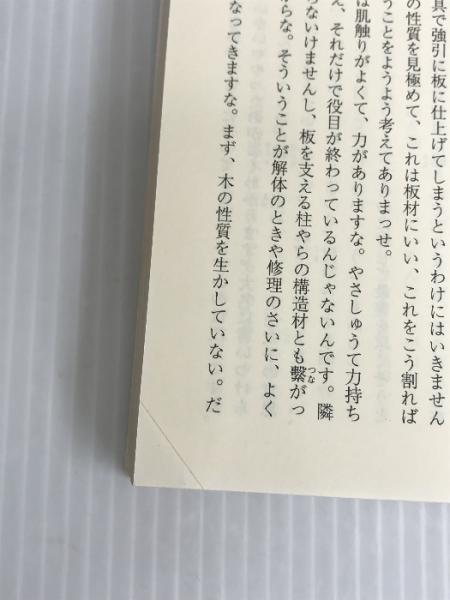 具で強引に板に仕上げてしまうというわけにはいきません
の性質を見極めて、これは板材にいい、これをこう割れば
うことをようよう考えてありまっせ。
は肌触りがよくて、力がありますな。やさしゅうて力持ち
え、それだけで役目が終わっているんじゃないんです。隣
らないけませんし、板を支える柱やらの構造材とも繫がっ
つな
からな。そういうことが解体のときや修理のさいに、よく
なってきますな。まず、木の性質を生かしていない。だ